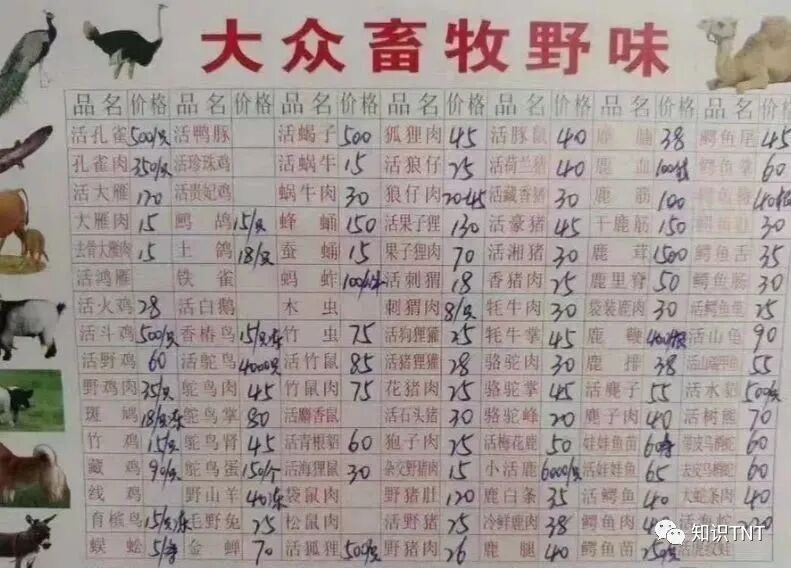 大众畜牧野味
品名 价格 品名 价格 品名 价格 品名 价格 品名 价格 品名 价格 品名 价格
活孔雀 500/只 活鸭豚 活蝎子 500 狐狸肉 45 活豚鼠 40 鹿脯 38 鳄鱼尾 45
孔雀肉 350/只 活珍珠鸡 活蜗牛 15 活狼仔 25 活荷兰猪 40 鹿血 鳄鱼掌 60
活大雁 120 活贵妃鸡 蜗牛肉 30 狼仔肉 20-45 活藏香猪 30 鹿筋 100
大雁肉 15 鹧鸪 15/只 蜂蛹 150 活果子狸 130 活豪猪 45 干鹿筋 150 30
去骨大雁肉 15 土鸽 18/只 蚕蛹 15 果子狸肉 70 活湘猪 30 鹿茸 1500 鳄鱼舌 35
活鸿雁 铁雀 蚂蚱 活刺猬 18 香猪肉 25 鹿里脊 50 鳄鱼肠 30
活火鸡 28 活白鹅 木虫 刺猬肉 8/只 牦牛肉 30 袋装鹿肉 30 活鳄鱼龟 25
活斗鸡 500/只 香椿鸟 竹虫 75 活狗狸獾 25 牦牛掌 45 鹿鞭 活山龟 90
活野鸡 60 活鸵鸟 4000只 活竹鼠 85 活猪狸獾 28 骆驼肉 30 鹿排 38 55
野鸡肉 35/只 鸵鸟肉 45 竹鼠肉 75 花猪肉 25 骆驼掌 45 活麂子 55 活水貂 500/只
斑鸠 鸵鸟掌 80 活麝香鼠 活石头猪 30 骆驼峰 20 麂子肉 40 活树熊 70
竹鸡 15/只 鸵鸟肾 45 活青根貂 60 狍子肉 25 活梅花鹿 50 娃娃鱼苗 60
藏鸡 90/只 鸵鸟蛋 150/个 活海狸鼠 30 杂交野猪肉 15 小活鹿 6000/只 活娃娃鱼 65 60
线鸡 野山羊 袋鼠肉 野猪肚 120 鹿白条 35 活鳄鱼 40 大蛇条肉 40
育槟鸟 毛野兔 25 松鼠肉 活野猪 25 冷鲜鹿肉 38 鳄鱼肉
蜈蚣 金蝉 70 活狐狸 500/只 野猪肉 26 鹿腿 40 鳄鱼苗
知识TNT